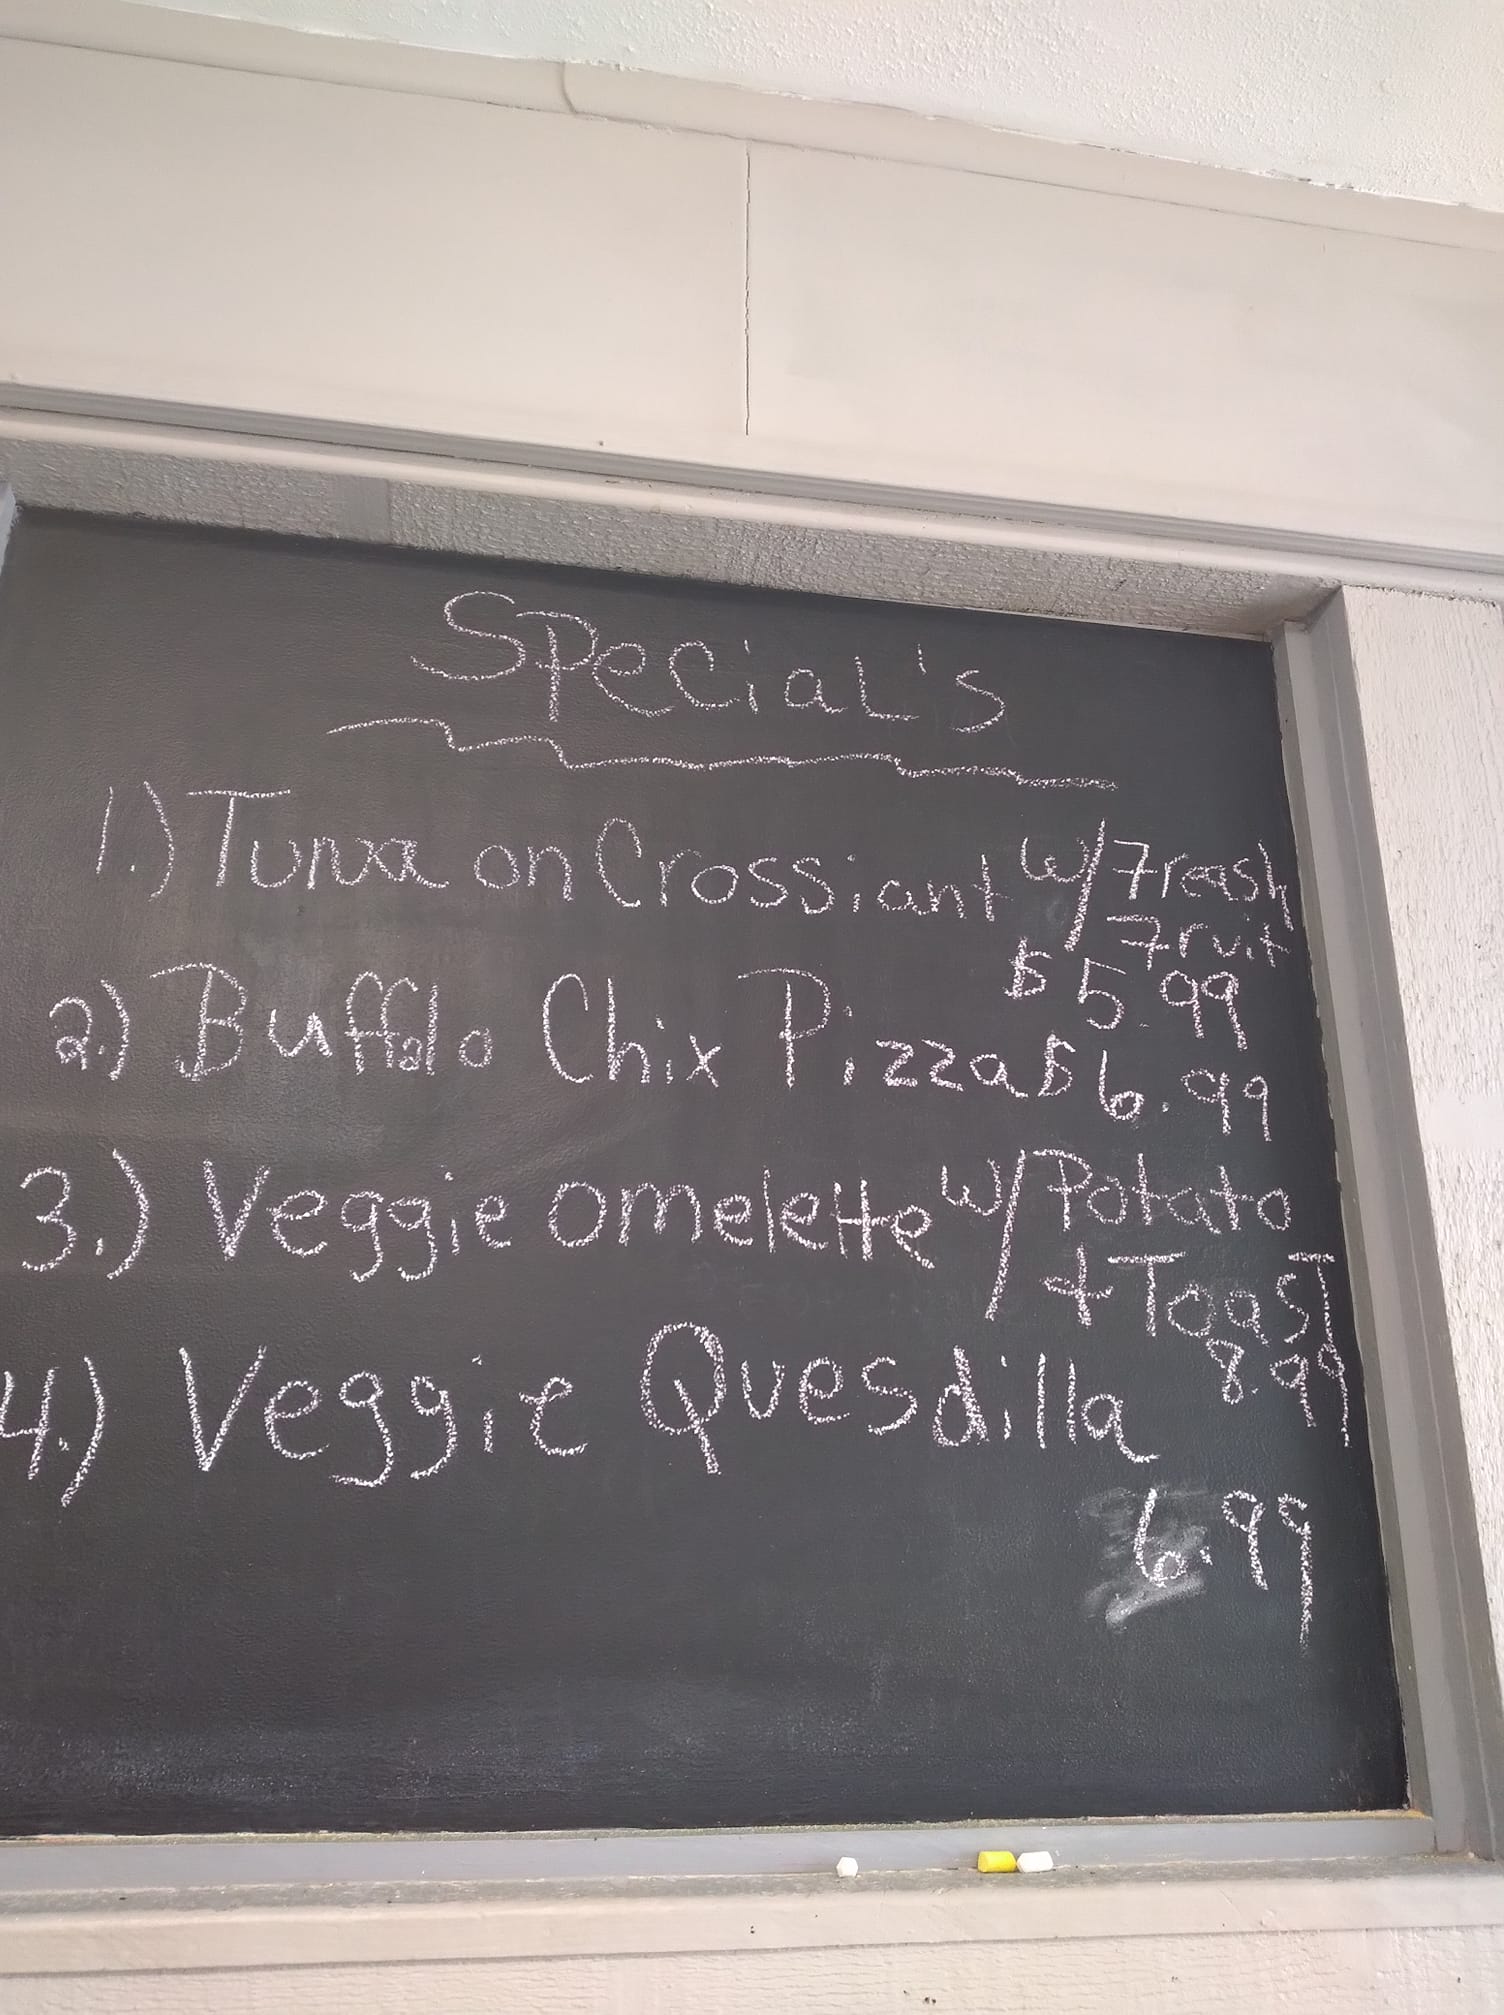 Special's
1.) Tuna on Crossiant w/ Freash
Fruit
$5.99
2.) Buffalo Chix Pizza $6.99
3.) Veggie omelette w/ Potato
+ Toast
8.99
4.) Veggie Quesdilla
6.99